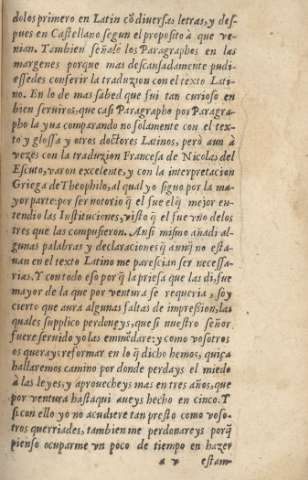 dolos primero en Latin cõ diuersas letras, y des-
pues en Castellano segun el proposito à que ve-
nian. Tambien señale los Paragraphos en las
margenes porque mas descansadamente pudi-
essedes conferir la traduzion con el texto Lati-
no. En lo de mas sabed que fui tan curioso en
bien seruiros, que casi Paragrapho por Paragra-
pho la yua comparando no solamente con el tex-
to y glossa y otros doctores Latinos, però aun à
vozes con la traduzion Francesa de Nicolas del
Escuto, varon excelente, y con la interpretacion
Griega de Theophilo, al qual yo signo por la ma-
yor parte: por ser notorio q̃ el fue elq̃ mejor en-
tendio las Instituciones, visto q̃ el fue vno delos
tres que las compusieron. Ansi mismo añadi al-
gunas palabras y declaraciones q̃ aunq̃ no esta-
uan en el texto Latino me parescian ser necessa-
rias. Y con todo eso por q̃ la priesa que las di, fue
mayor de la que por ventura se requeria, soy
cierto que aura algunas faltas de impreßion, las
quales supplico perdoneys, que si nuestro señor
fuere seruido yo las emẽdare: y como vosotros
os querays reformar en lo q̃ dicho hemos, quiça
hallaremos camino por donde perdays el miedo
à las leyes, y aprouecheys mas en tres años, que
por ventura hasta qui aueys hecho en cinco. Y
si con ello yo no acudiere tan presto como voso-
tros querriades, tambien me perdonareys porq̃
pienso ocuparme vn poco de tiempo en hazer
a v estam-